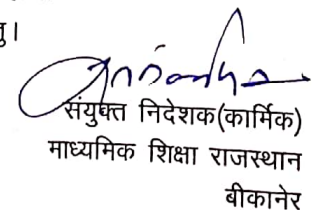 तु।
संयुक्त निदेशक(कार्मिक)
माध्यमिक शिक्षा राजस्थान
बीकानेर